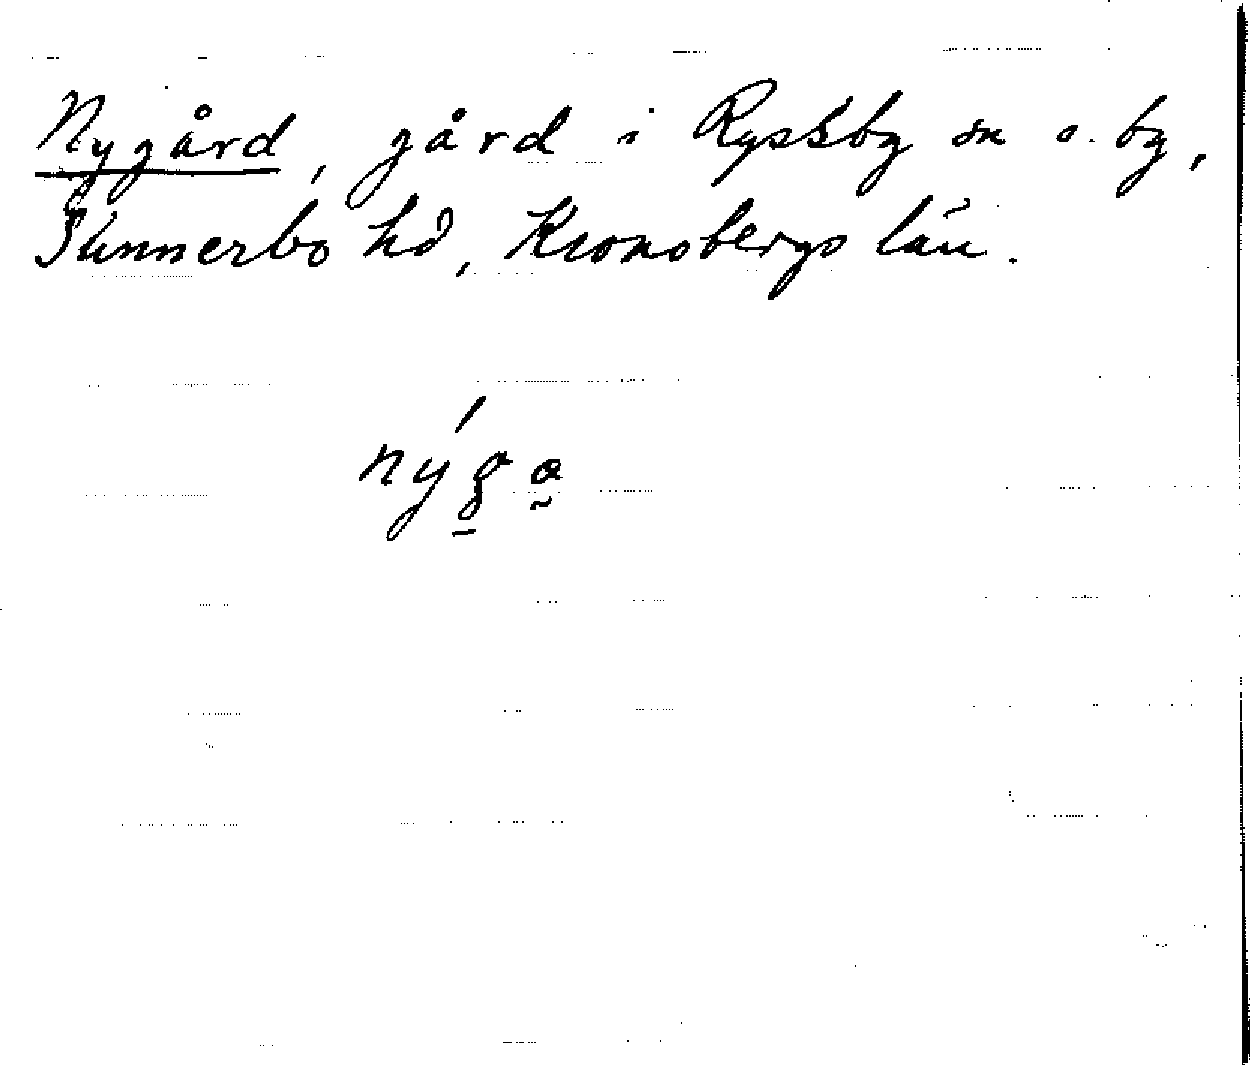 Nygård, gård i Ryssby sn o. by,
Sunnerbo hd, Kronobergs län.